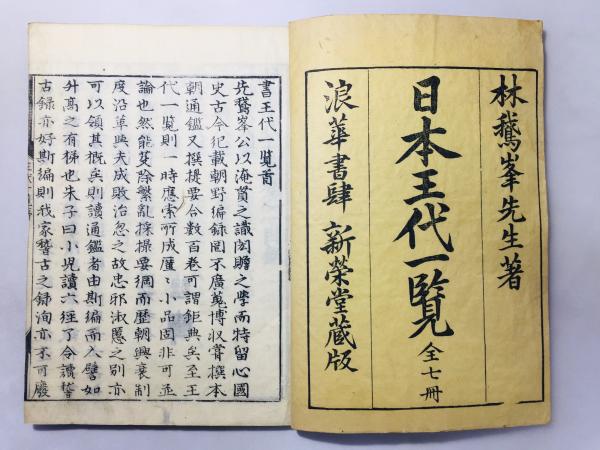 林鵞峯先生著
日本王代一覽 全七冊
浪華書肆 新榮堂藏版
書王代一覧首
先鵞峯公以海貫之識閎贍之學而特留心國
史古今紀載朝野編録罔不廣蒐博収嘗撰本
朝通鑑又撰提要合數百卷可謂鉅典矣至王
代一覧則一時應索所成區〻小品固非可並
論也然能芟除繁亂採操要綱而歴朝興衰制
度沿革與夫成敗治忽之故忠邪淑慝之別亦
可以領其概矣則讀通鑑者由斯編而入譬如
升高之有梯也朱子曰小児讀六經了令讀稽
古録亦好斯編則我家稽古之録洵亦不可廢